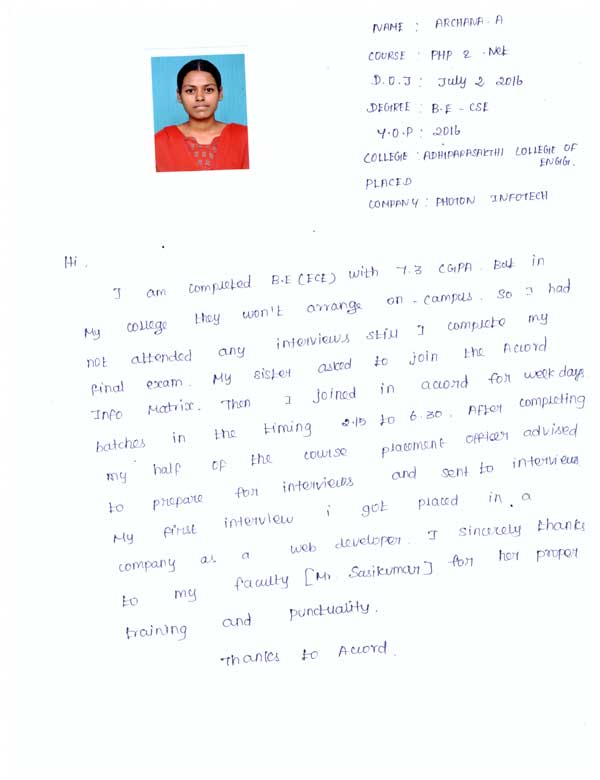 NAME : ARCHANA.A
COURSE : PHP & .Net
D.O.J : July 2 2016
DEGREE : B.E - CSE
Y.O.P : 2016
COLLEGE : ADHIPARASAKTHI COLLEGE OF
ENGG.
PLACED
COMPANY : PHOTON INFOTECH
Hi.
I am completed B.E (ECE) with 7.3 CGPA. But in
My college they won't arrange on-campus. So I had
not attended any interviews still I complete my
final exam. My sister asked to join the Accord
Info Matrix. Then I joined in accord for weekdays
batches in the timing 2.15 to 6.30. After completing
my half of the course placement officer advised
to prepare for interviews and sent to interviews
My first interview i got placed in a
company as a web developer. I sincerely thanks
to my faculty [Mr. Sasikumar] for her proper
training and punctuality.
Thanks to Accord.